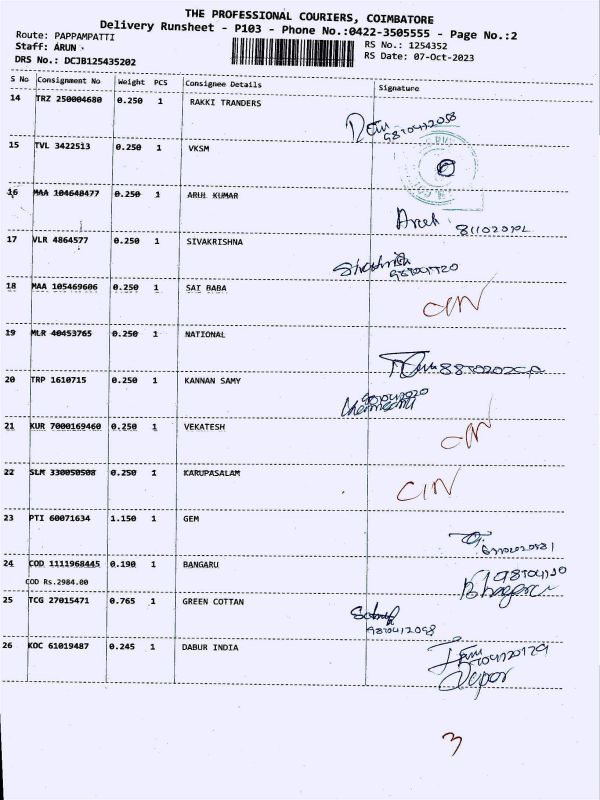 THE PROFESSIONAL COURIERS, COIMBATORE
Delivery Runsheet - P103 - Phone No.:0422-3505555 - Page No.:2
Route: PAPPAMPATTI
Staff: ARUN
RS No.: 1254352
DRS No.: DCJB125435202
RS Date: 07-Oct-2023
S No Consignment No Weight PCS Consignee Details Signature
14 TRZ 250004680 0.250 1 RAKKI TRANDERS
15 TVL 3422513 0.250 1 VKSM
16 MAA 104640477 0.250 1 ARUL KUMAR
17 VLR 4864577 0.250 1 SIVAKRISHNA
18 MAA 105469606 0.250 1 SAI BABA
CIN
19 MLR 40453765 0.250 1 NATIONAL
20 TRP 1610715 0.250 1 KANNAN SAMY
21 KUR 7000169460 0.250 1 VEKATESH
CIN
22 SLM 330050508 0.250 1 KARUPASALAM
CIN
23 PTI 60071634 1.150 1 GEM
24 COD 1111968445 0.190 1 BANGARU
COD Rs.2984.00
25 TCG 27015471 0.765 1 GREEN COTTAN
26 KOC 61019487 0.245 1 DABUR INDIA
3